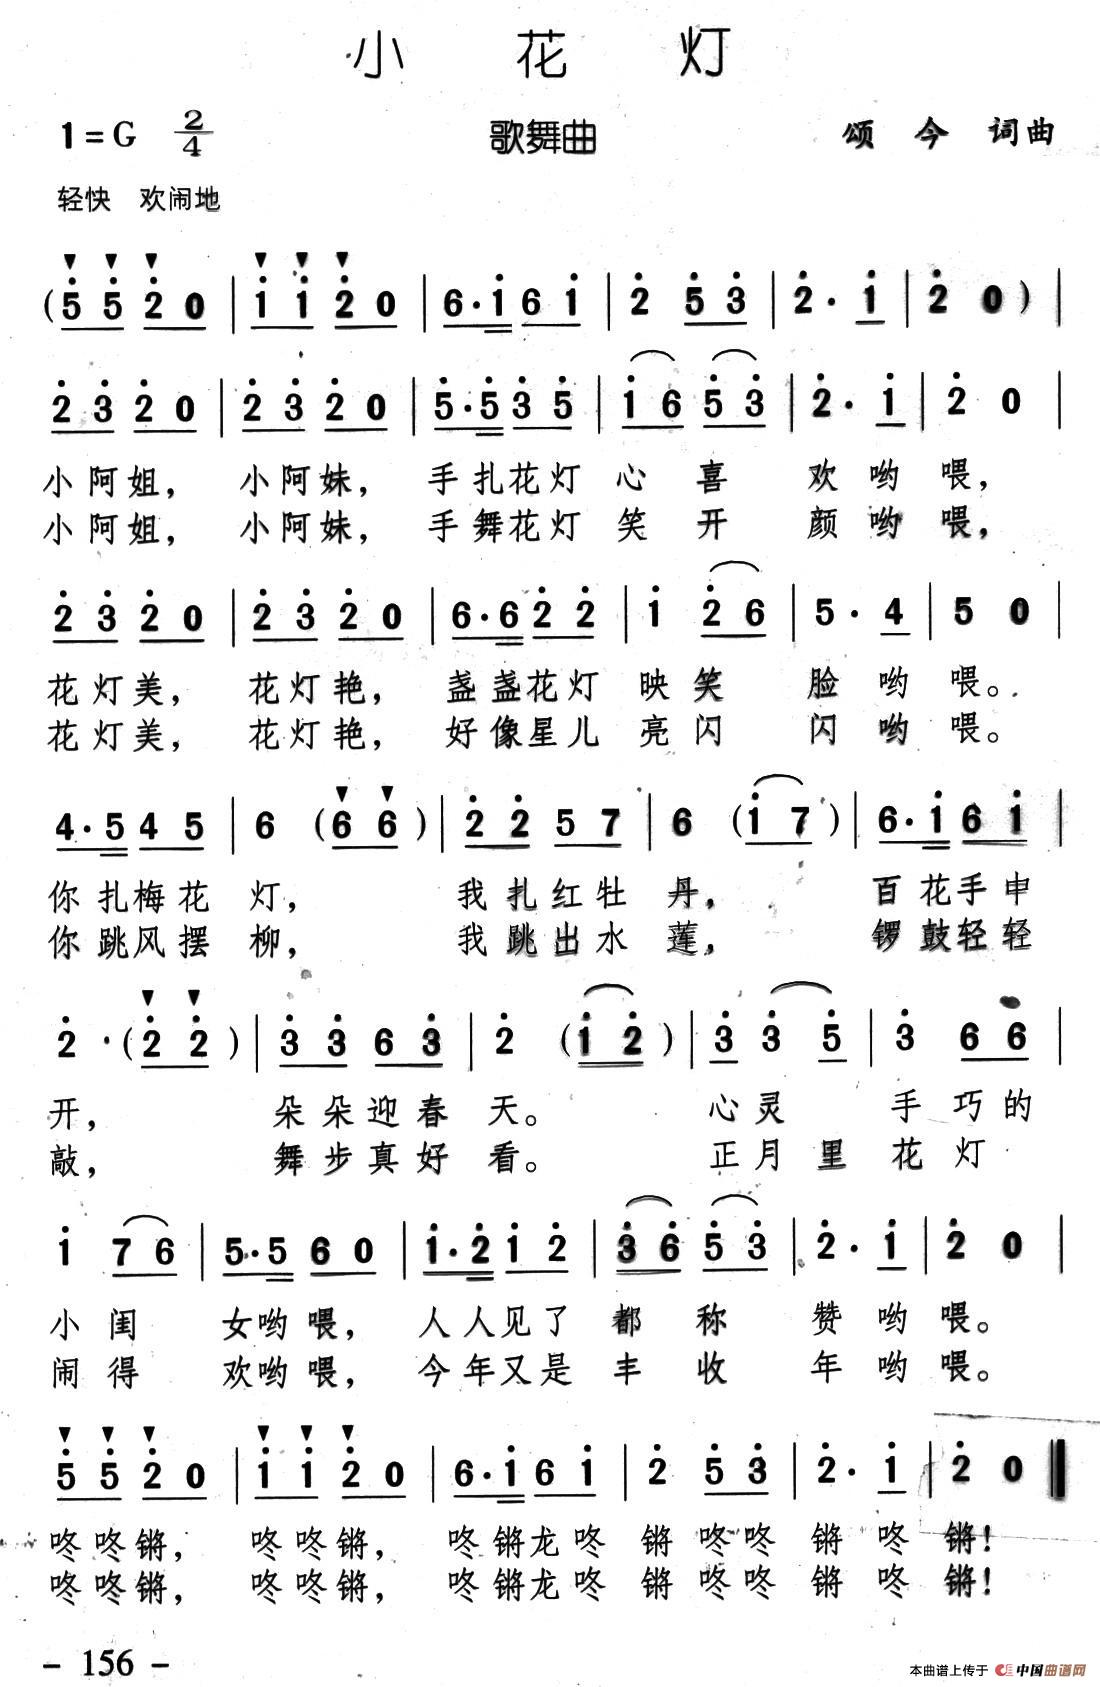 小 花 灯
1=G 2/4 歌舞曲 颂 今 词曲
轻快 欢闹地
( 5 5 2 0 | 1 1 2 0 | 6· 1 6 1 | 2 5 3 | 2· 1 | 2 0 ) |
2 3 2 0 | 2 3 2 0 | 5· 5 3 5 | 1 6 5 3 | 2· 1 | 2 0 |
小阿姐, 小阿妹, 手扎花灯 心 喜 欢 哟 喂,
小阿姐, 小阿妹, 手舞花灯 笑 开 颜 哟 喂,
2 3 2 0 | 2 3 2 0 | 6· 6 2 2 | 1 2 6 | 5· 4 | 5 0 |
花灯美, 花灯艳, 盏盏花灯 映 笑 脸 哟 喂。
花灯美, 花灯艳, 好像星儿 亮 闪 闪 哟 喂。
4· 5 4 5 | 6 ( 6 6 ) | 2 2 5 7 | 6 ( 1 7 ) | 6· 1 6 1 |
你扎梅花 灯, 我扎红牡 丹, 百花手中
你跳风摆 柳, 我跳出水 莲, 锣鼓轻轻
2 · ( 2 2 ) | 3 3 6 3 | 2 ( 1 2 ) | 3 3 5 | 3 6 6 |
开, 朵朵迎春 天。 心 灵 手 巧的
敲, 舞步真好 看。 正 月 里 花 灯
1 7 6 | 5· 5 6 0 | 1· 2 1 2 | 3 6 5 3 | 2· 1 | 2 0 |
小 闺 女哟喂, 人人见了 都 称 赞 哟 喂。
闹 得 欢哟喂, 今年又是 丰 收 年 哟 喂。
5 5 2 0 | 1 1 2 0 | 6· 1 6 1 | 2 5 3 | 2· 1 | 2 0 ‖
咚咚锵, 咚咚锵, 咚锵龙咚 锵 咚咚 锵 咚 锵!
咚咚锵, 咚咚锵, 咚锵龙咚 锵 咚咚 锵 咚 锵!
- 156 -
本曲谱上传于 中国曲谱网